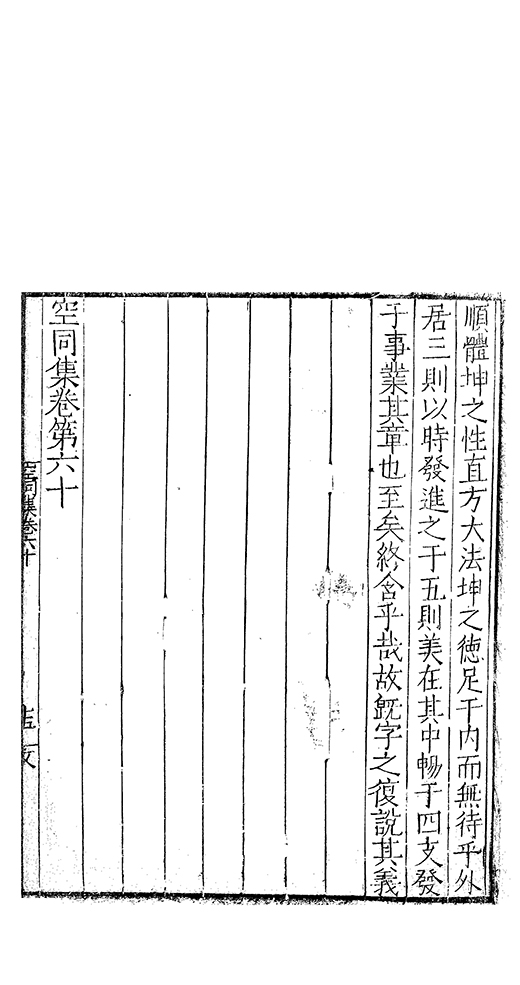 順體坤之性直方大法坤之徳足于内而無待乎外
居三則以時發進之于五則美在其中暢于四支發
于事業其章也至矣終含乎哉故旣字之復説其義
空同集卷第六十
空同集卷六十